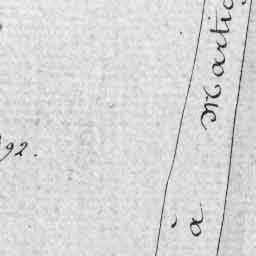 à Martig
92.